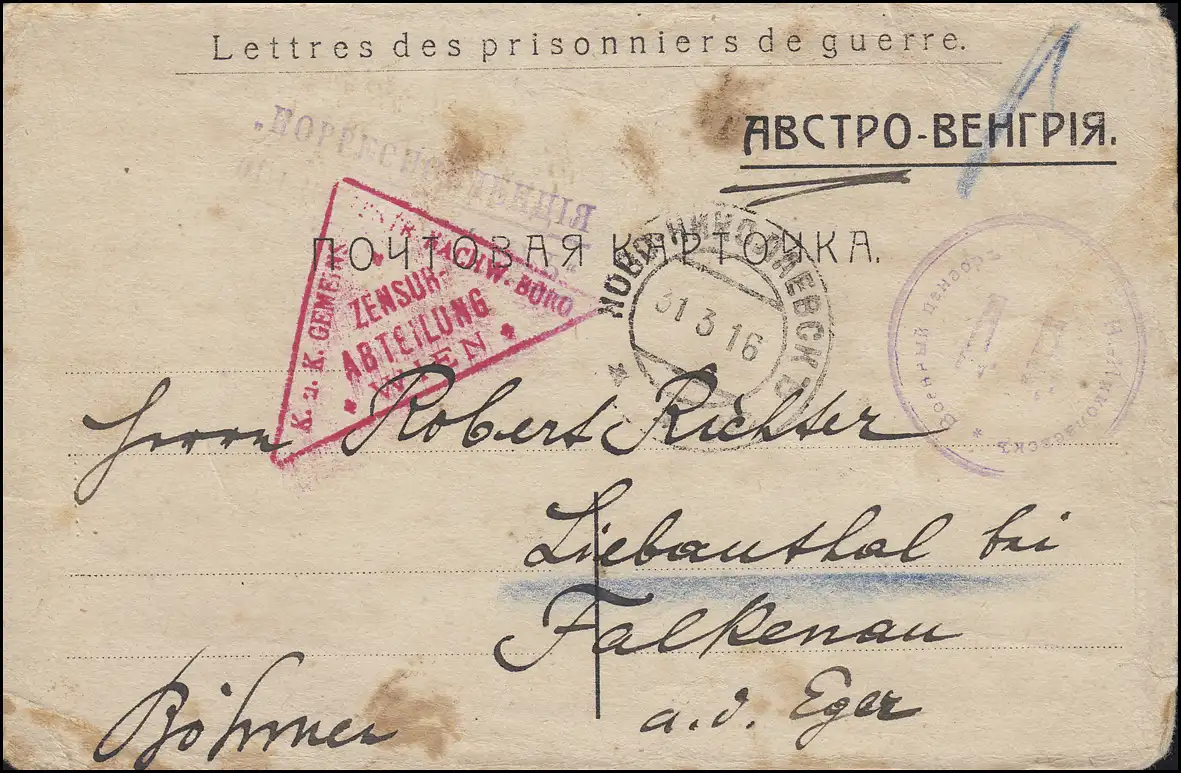 Lettres des prisonniers de guerre.
АВСТРО-ВЕНГРІЯ.
ПОЧТОВАЯ КАРТОЧКА.
K. u. K. GEMEINS.
NACHW.-BÜRO
ZENSUR-
ABTEILUNG
WIEN
НОВО-НИКОЛАЕВСКЪ
31 3 16
Военный цензоръ
Н.-Николаевскъ
Herrn Robert Richter
Liebauthal bei
Falkenau
a. d. Eger
Böhmen